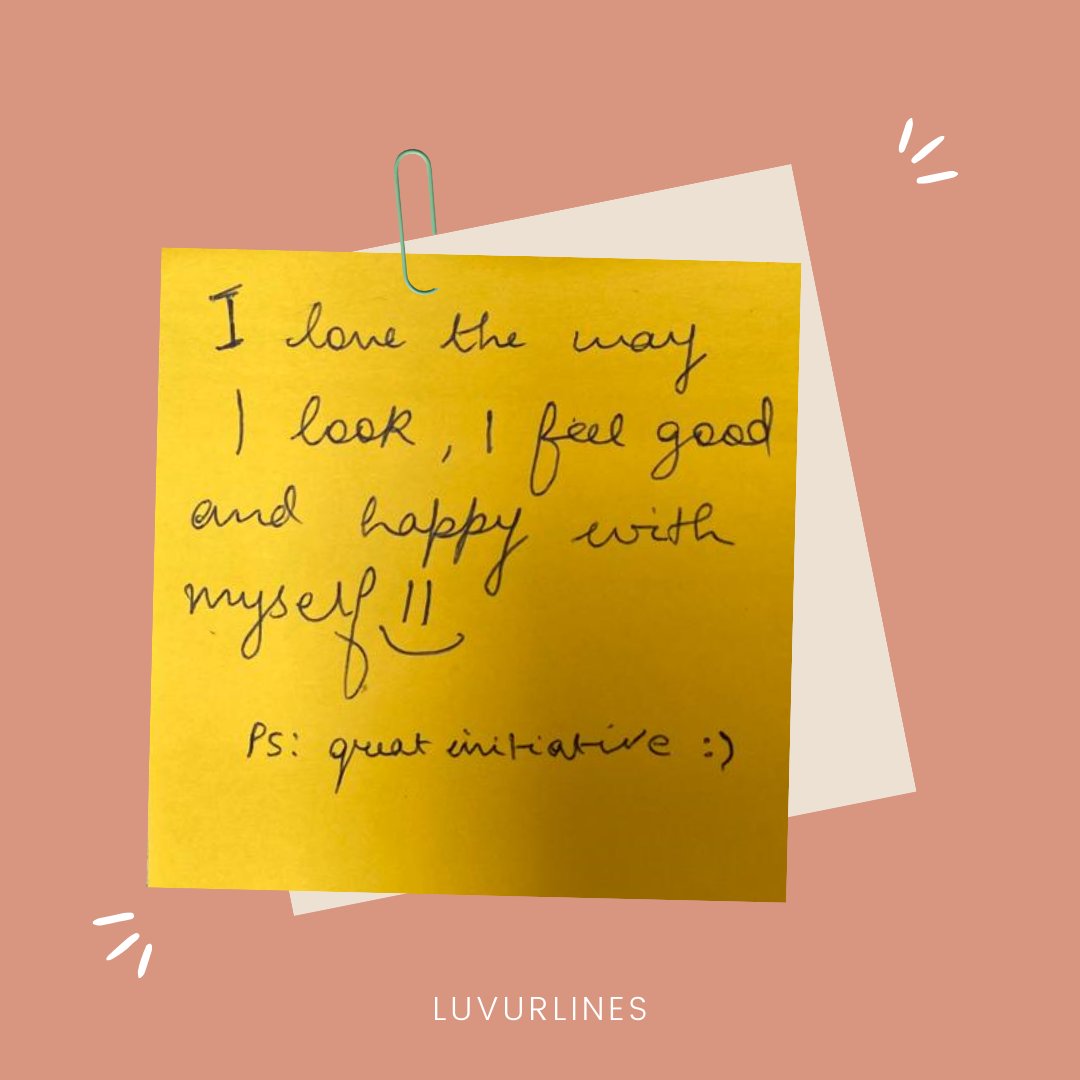 I love the way
I look, I feel good
and happy with
myself !!
Ps: great initiative :)
LUVURLINES